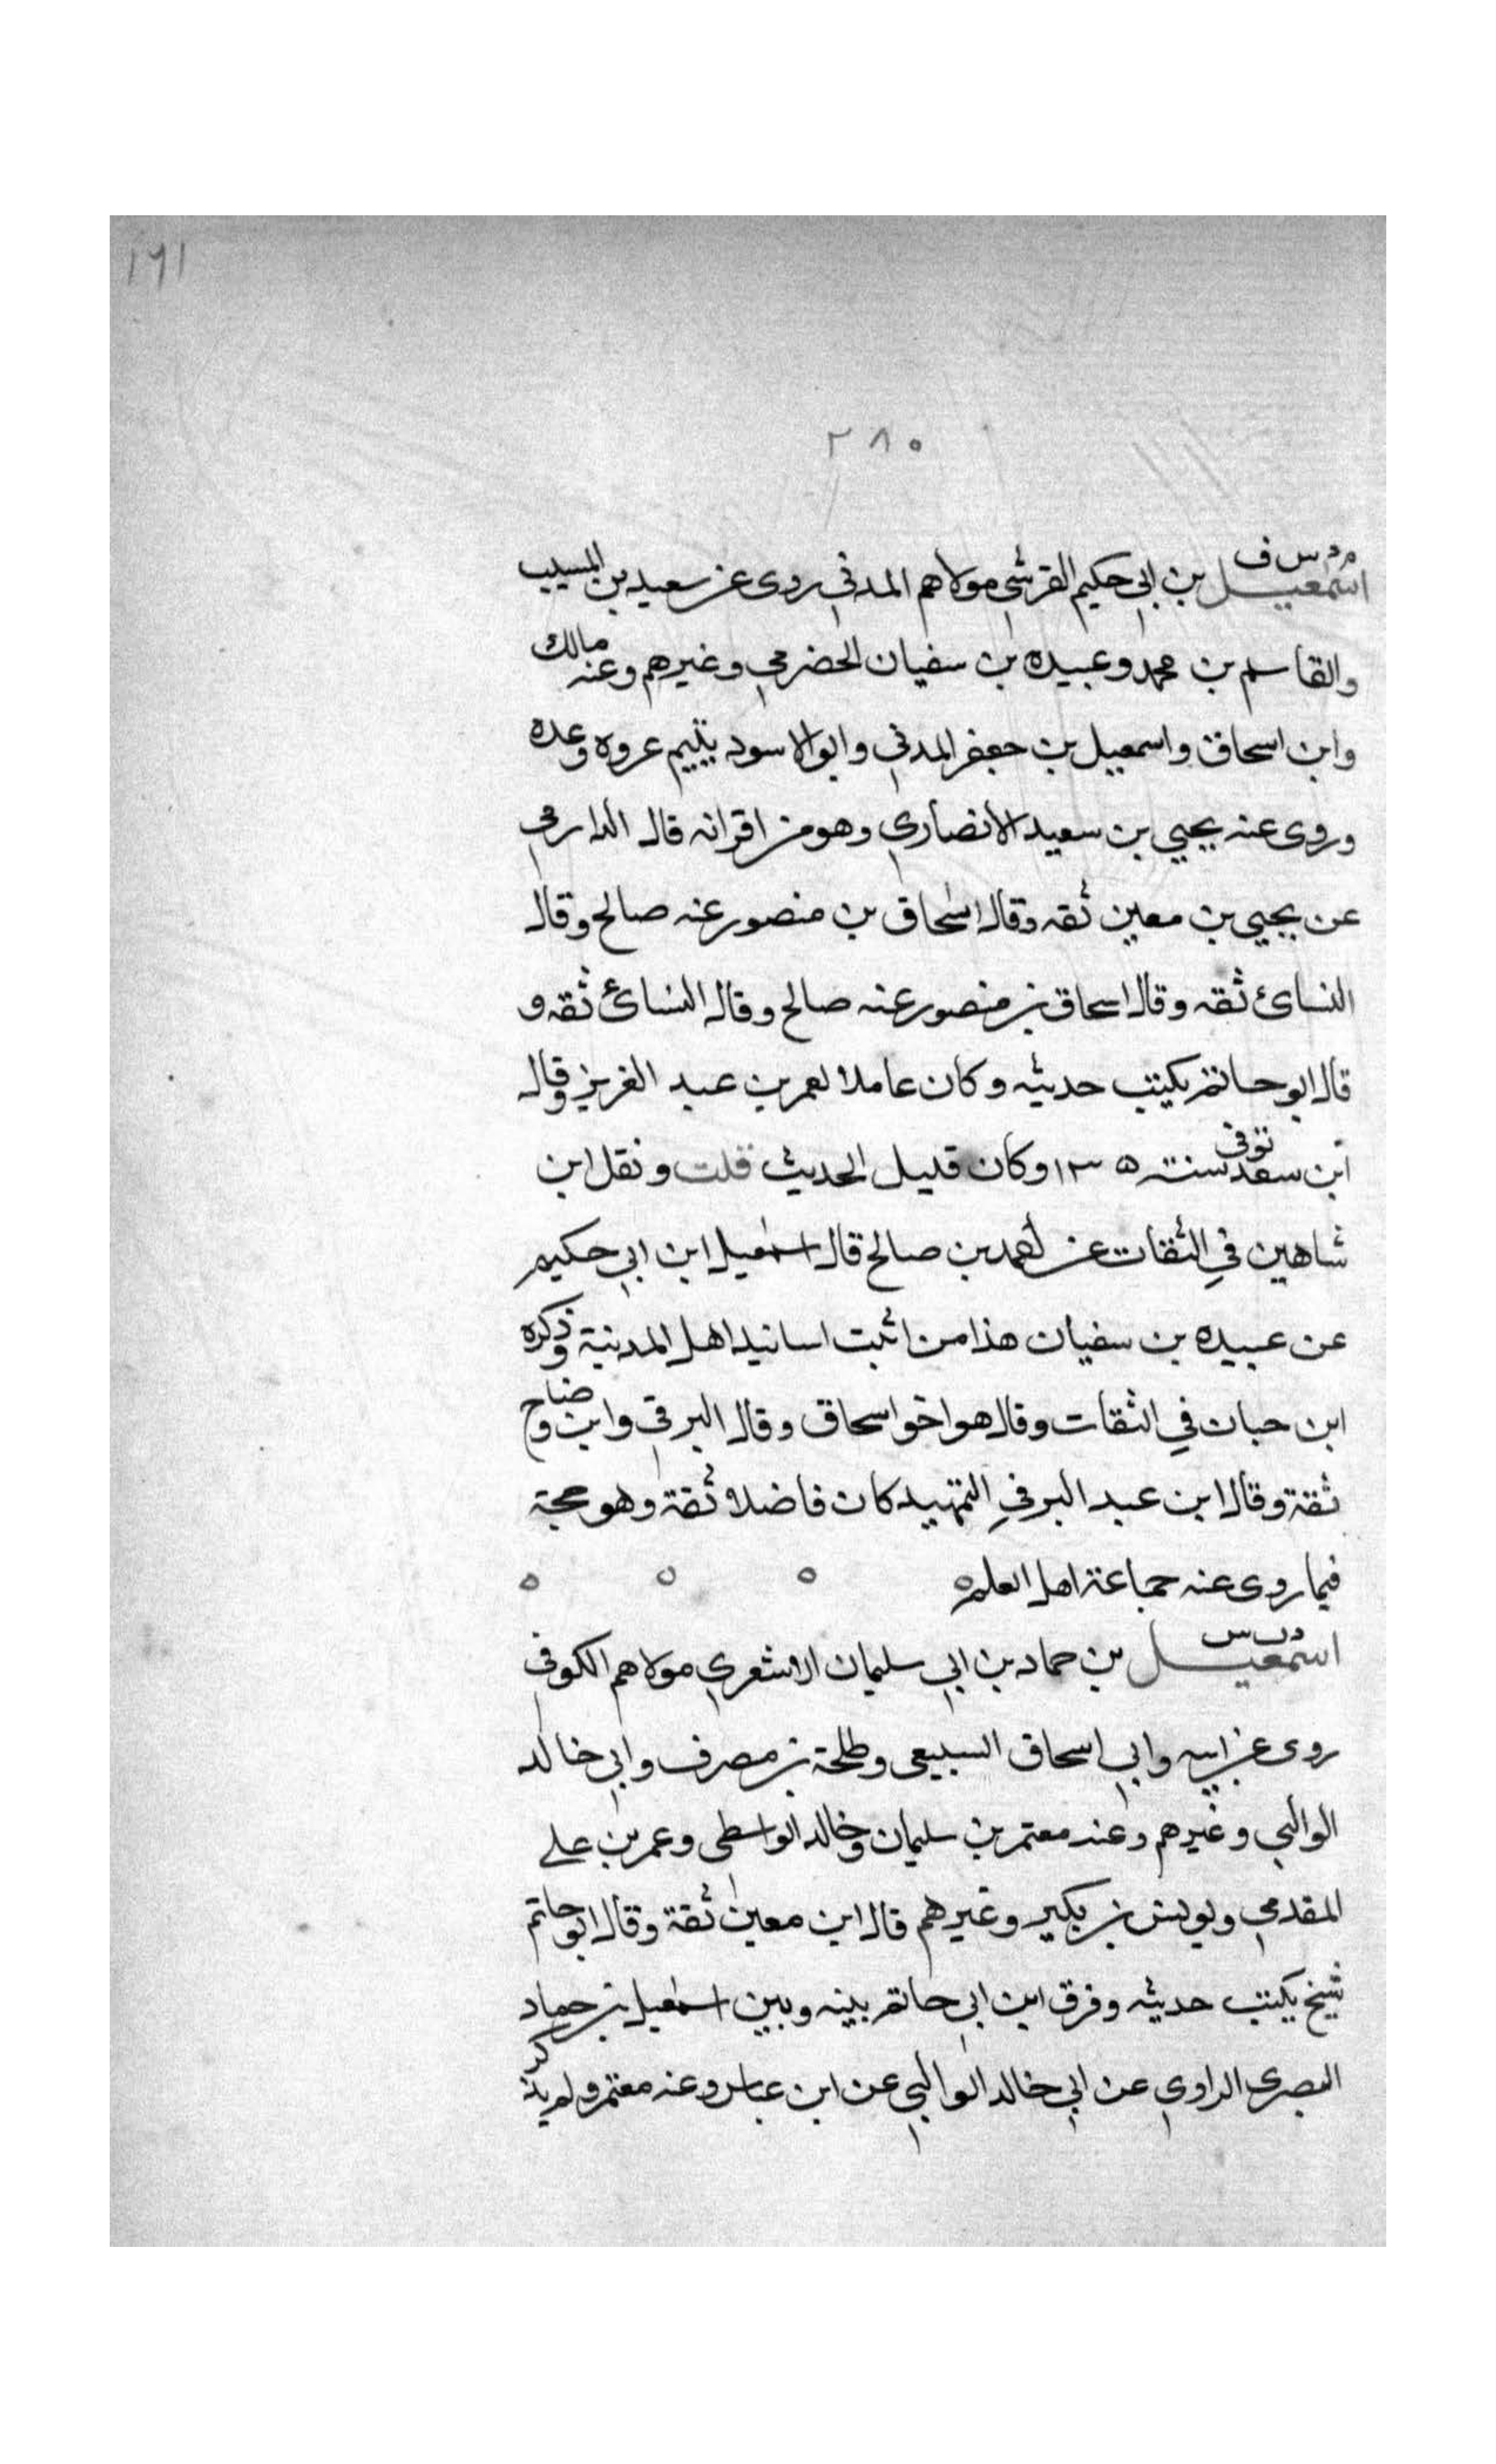 ١٦١
٢٨٠
م د س ف
اسمعيل بن ابي حكيم القرشي مولاهم المدني روى عن سعيد بن المسيب
والقاسم بن محمد وعبيده بن سفيان الحضرمي وغيرهم وعنه مالك
وابن اسحاق واسمعيل بن جعفر المدني وابو الاسود يتيم عروه وعده
وروى عنه يحيي بن سعيد الانصاري وهو من اقرانه قال الدارمي
عن يحيي بن معين ثقه وقال اسحاق بن منصور عنه صالح وقال
النسائ ثقه وقال اسحاق بن منصور عنه صالح وقال النسائ ثقه و
قال ابو حاتم يكتب حديثه وكان عاملا لعمر بن عبد العزيز وقال
ابن سعد توفي سنة ١٣٥ وكان قليل الحديث قلت ونقل ابن
شاهين في الثقات عن احمد بن صالح قال اسمعيل ابن ابي حكيم
عن عبيده بن سفيان هذا من اثبت اسانيد اهل المدينة وذكره
ابن حبان في الثقات وقال هو اخو اسحاق وقال البرقي وابن وضاح
ثقة وقال ابن عبد البر في التمهيد كان فاضلا ثقة وهو حجة
فيما روى عنه جماعة اهل العلم ه ه ه ه
د ت س
اسمعيل بن حماد بن ابي سليمان الاشعري مولاهم الكوفي
روى عن ابيه وابي اسحاق السبيعي وطلحة بن مصرف وابي خالد
الوالبي وغيرهم وعنه معتمر بن سليمان وخالد الواسطي وعمر بن علي
المقدمي ويونس بن بكير وغيرهم قال ابن معين ثقة وقال ابو حاتم
شيخ يكتب حديثه وفرق ابن ابي حاتم بينه وبين اسمعيل بن حماد
البصرى الراوي عن ابي خالد الوالبي عن ابن عباس وعنه معتمر ولم يذكر